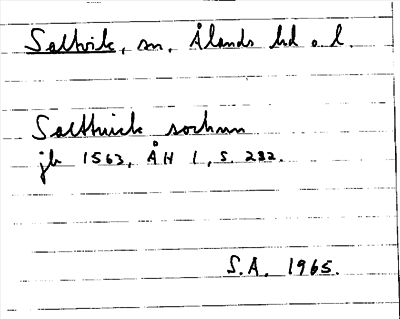 Saltvik, sn, Ålands hd o. l.
Saltthuick sochnn
jb 1563, ÅH 1, s. 282.
S.A. 1965.